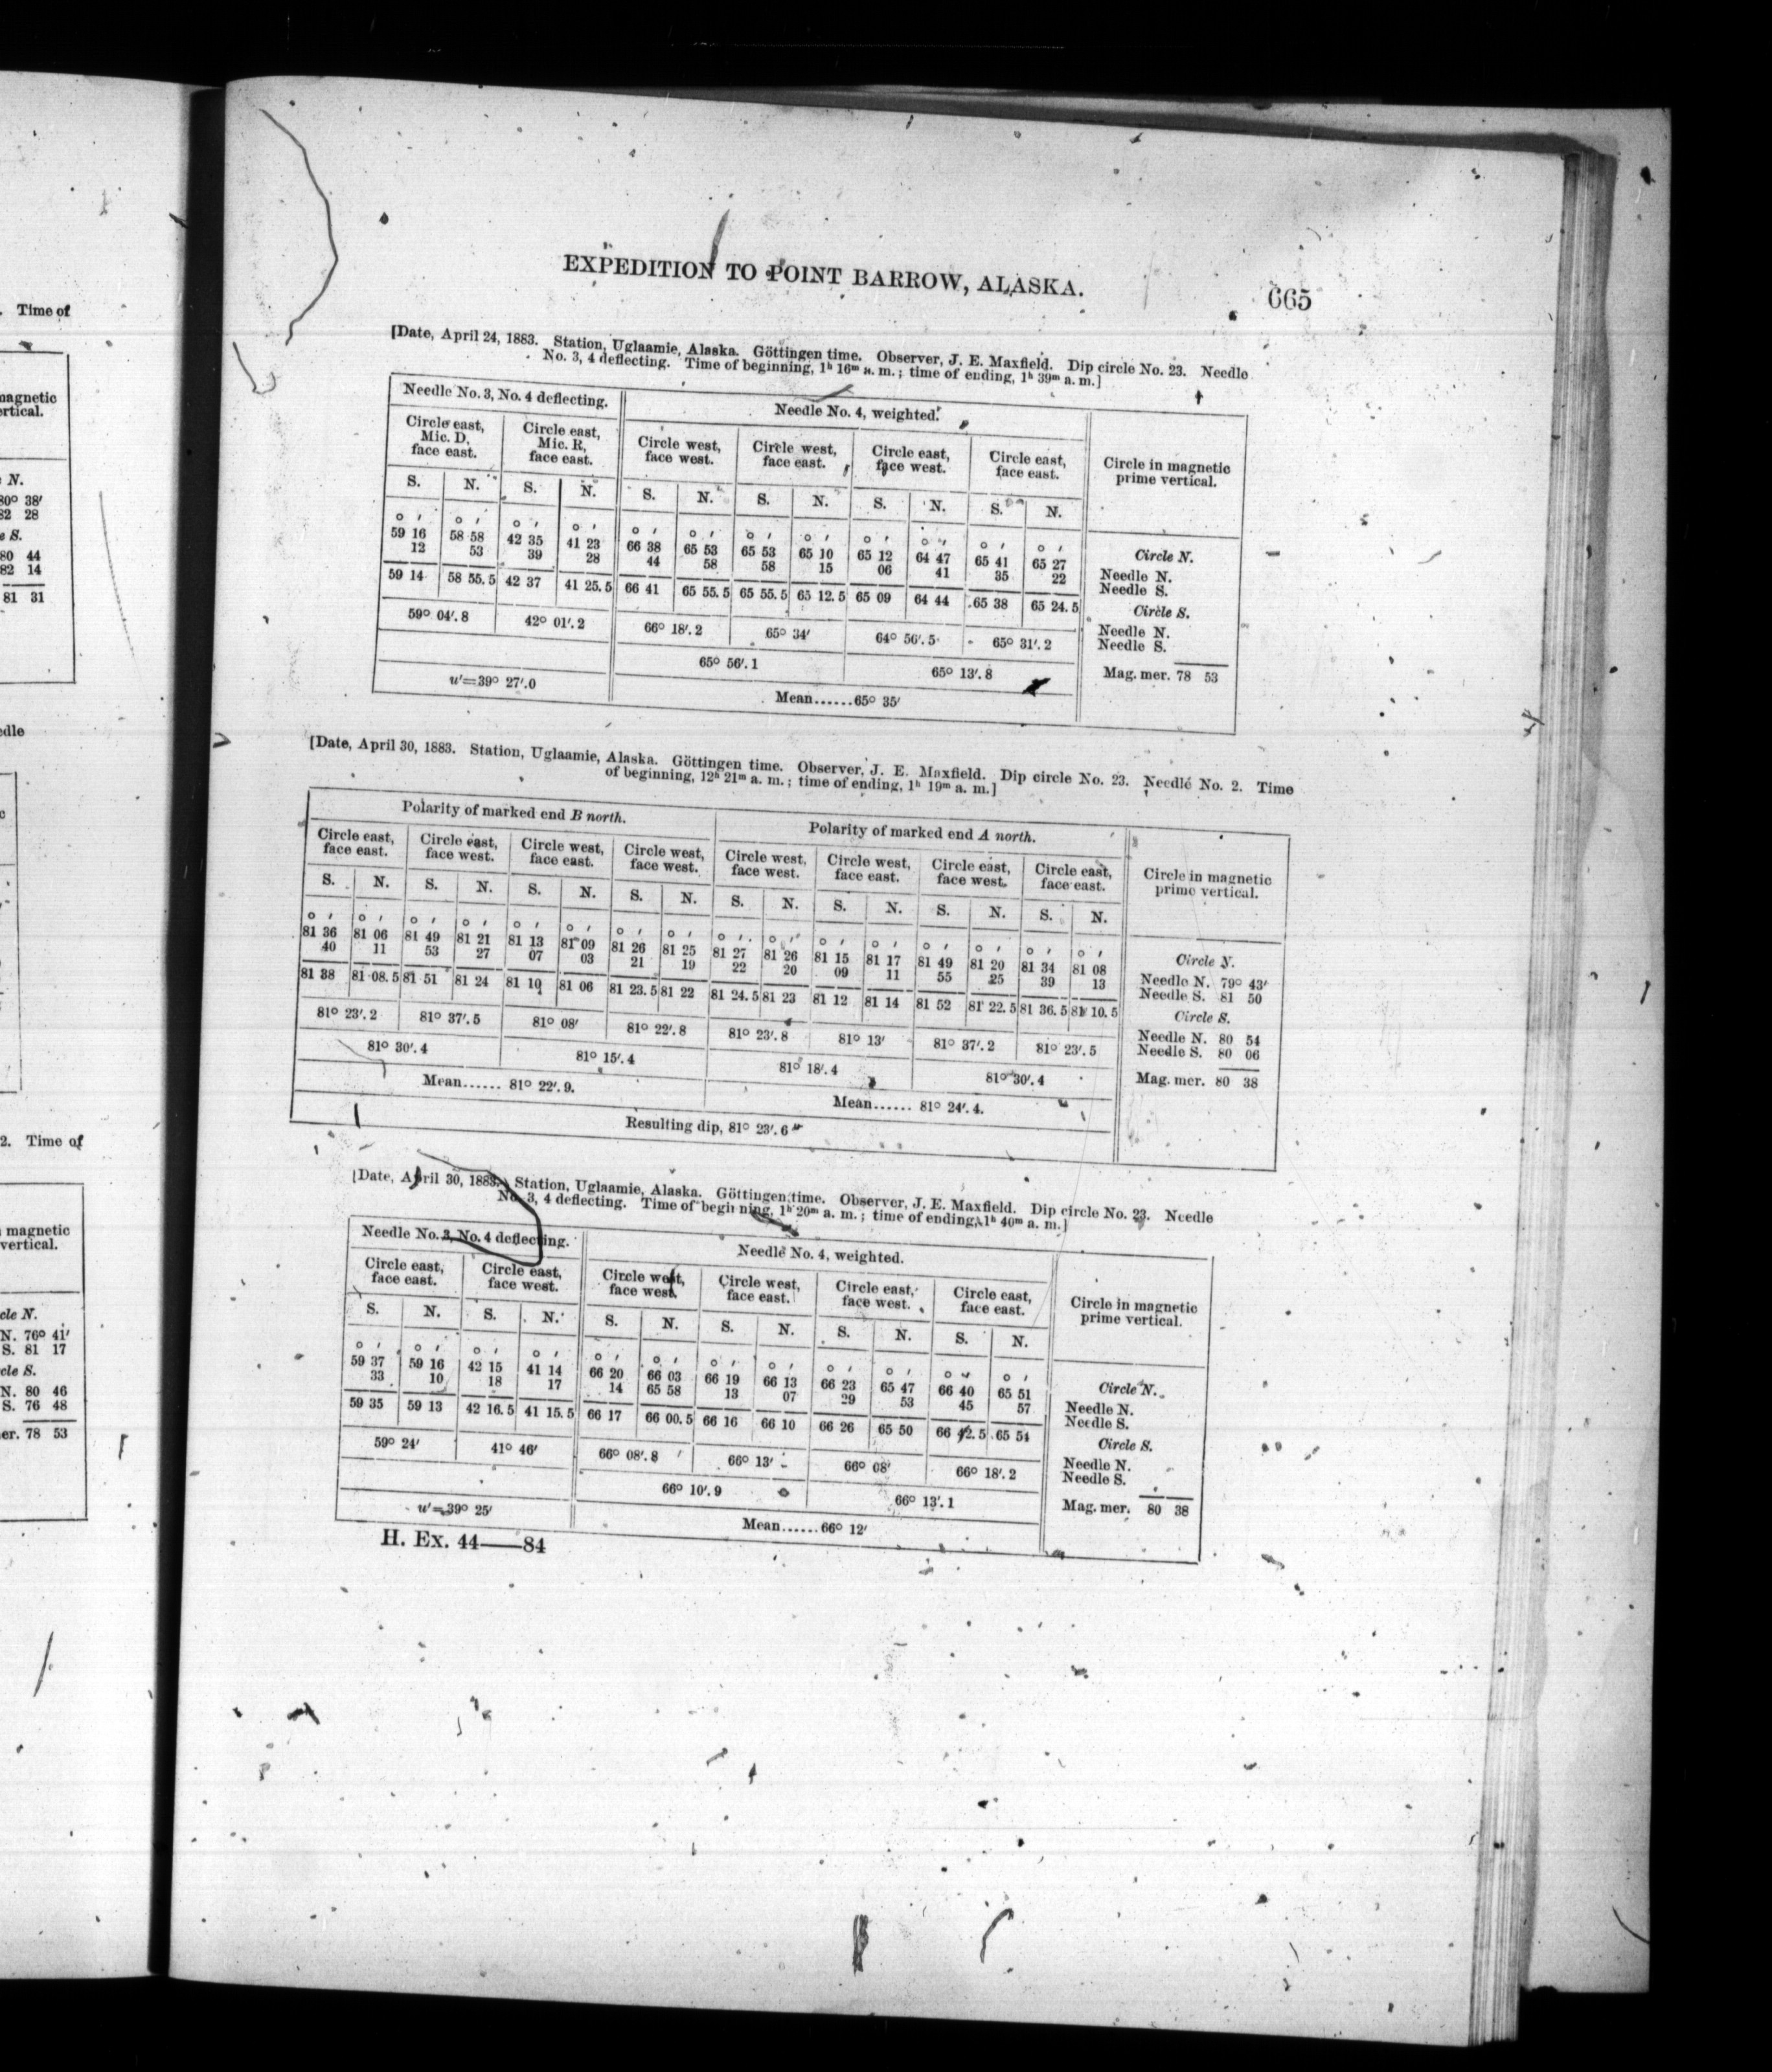 . Time of
magnetic
vertical.
N.
80° 38′
82 28
S.
80 44
82 14
81 31
2. Time of
magnetic
vertical.
N.
N. 76° 41′
S. 81 17
S.
N. 80 46
S. 76 48
78 53
EXPEDITION TO POINT BARROW, ALASKA.
665
[Date, April 24, 1883. Station, Uglaamie, Alaska. Göttingen time. Observer, J. E. Maxfield. Dip circle No. 23. Needle
No. 3, 4 deflecting. Time of beginning, 1ʰ 16ᵐ a. m.; time of ending, 1ʰ 39ᵐ a. m.]
Needle No. 3, No. 4 deflecting. Needle No. 4, weighted. Circle in magnetic
prime vertical.
Circle east, Circle east, Circle west, Circle west, Circle east, Circle east,
Mic. D, Mic. R, face west. face east. face west. face east.
face east. face east.
S. N. S. N. S. N. S. N. S. N. S. N.
° ′ ° ′ ° ′ ° ′ ° ′ ° ′ ° ′ ° ′ ° ′ ° ′ ° ′ ° ′
59 16 58 58 42 35 41 23 66 38 65 53 65 53 65 10 65 12 64 47 65 41 65 27
12 53 39 28 44 58 58 15 06 41 35 22
59 14 58 55.5 42 37 41 25.5 66 41 65 55.5 65 55.5 65 12.5 65 09 64 44 65 38 65 24.5
59° 04′.8 42° 01′.2 66° 18′.2 65° 34′ 64° 56′.5 65° 31′.2
65° 56′.1 65° 13′.8
u′=39° 27′.0 Mean......65° 35′
Circle N.
Needle N.
Needle S.
Circle S.
Needle N.
Needle S.
Mag. mer. 78 53
[Date, April 30, 1883. Station, Uglaamie, Alaska. Göttingen time. Observer, J. E. Maxfield. Dip circle No. 23. Needle No. 2. Time
of beginning, 12ʰ 21ᵐ a. m.; time of ending, 1ʰ 19ᵐ a. m.]
Polarity of marked end B north. Polarity of marked end A north. Circle in magnetic
prime vertical.
Circle east, Circle east, Circle west, Circle west, Circle west, Circle west, Circle east, Circle east,
face east. face west. face east. face west. face west. face east. face west. face east.
S. N. S. N. S. N. S. N. S. N. S. N. S. N. S. N.
° ′ ° ′ ° ′ ° ′ ° ′ ° ′ ° ′ ° ′ ° ′ ° ′ ° ′ ° ′ ° ′ ° ′ ° ′ ° ′
81 36 81 06 81 49 81 21 81 13 81 09 81 26 81 25 81 27 81 26 81 15 81 17 81 49 81 20 81 34 81 08
40 11 53 27 07 03 21 19 22 20 09 11 55 25 39 13
81 38 81 08.5 81 51 81 24 81 10 81 06 81 23.5 81 22 81 24.5 81 23 81 12 81 14 81 52 81 22.5 81 36.5 81 10.5
81° 23′.2 81° 37′.5 81° 08′ 81° 22′.8 81° 23′.8 81° 13′ 81° 37′.2 81° 23′.5
81° 30′.4 81° 15′.4 81° 18′.4 81° 30′.4
Mean...... 81° 22′.9. Mean...... 81° 24′.4.
Resulting dip, 81° 23′.6
Circle N.
Needle N. 79° 43′
Needle S. 81 50
Circle S.
Needle N. 80 54
Needle S. 80 06
Mag. mer. 80 38
[Date, April 30, 1883. Station, Uglaamie, Alaska. Göttingen time. Observer, J. E. Maxfield. Dip circle No. 23. Needle
No. 3, 4 deflecting. Time of beginning, 1ʰ 20ᵐ a. m.; time of ending, 1ʰ 40ᵐ a. m.]
Needle No. 3, No. 4 deflecting. Needle No. 4, weighted. Circle in magnetic
prime vertical.
Circle east, Circle east, Circle west, Circle west, Circle east, Circle east,
face east. face west. face west. face east. face west. face east.
S. N. S. N. S. N. S. N. S. N. S. N.
° ′ ° ′ ° ′ ° ′ ° ′ ° ′ ° ′ ° ′ ° ′ ° ′ ° ′ ° ′
59 37 59 16 42 15 41 14 66 20 66 03 66 19 66 13 66 23 65 47 66 40 65 51
33 10 18 17 14 65 58 13 07 29 53 45 57
59 35 59 13 42 16.5 41 15.5 66 17 66 00.5 66 16 66 10 66 26 65 50 66 42.5 65 54
59° 24′ 41° 46′ 66° 08′.8 66° 13′ 66° 08′ 66° 18′.2
66° 10′.9 66° 13′.1
u′=39° 25′ Mean......66° 12′
Circle N.
Needle N.
Needle S.
Circle S.
Needle N.
Needle S.
Mag. mer. 80 38
H. Ex. 44——84